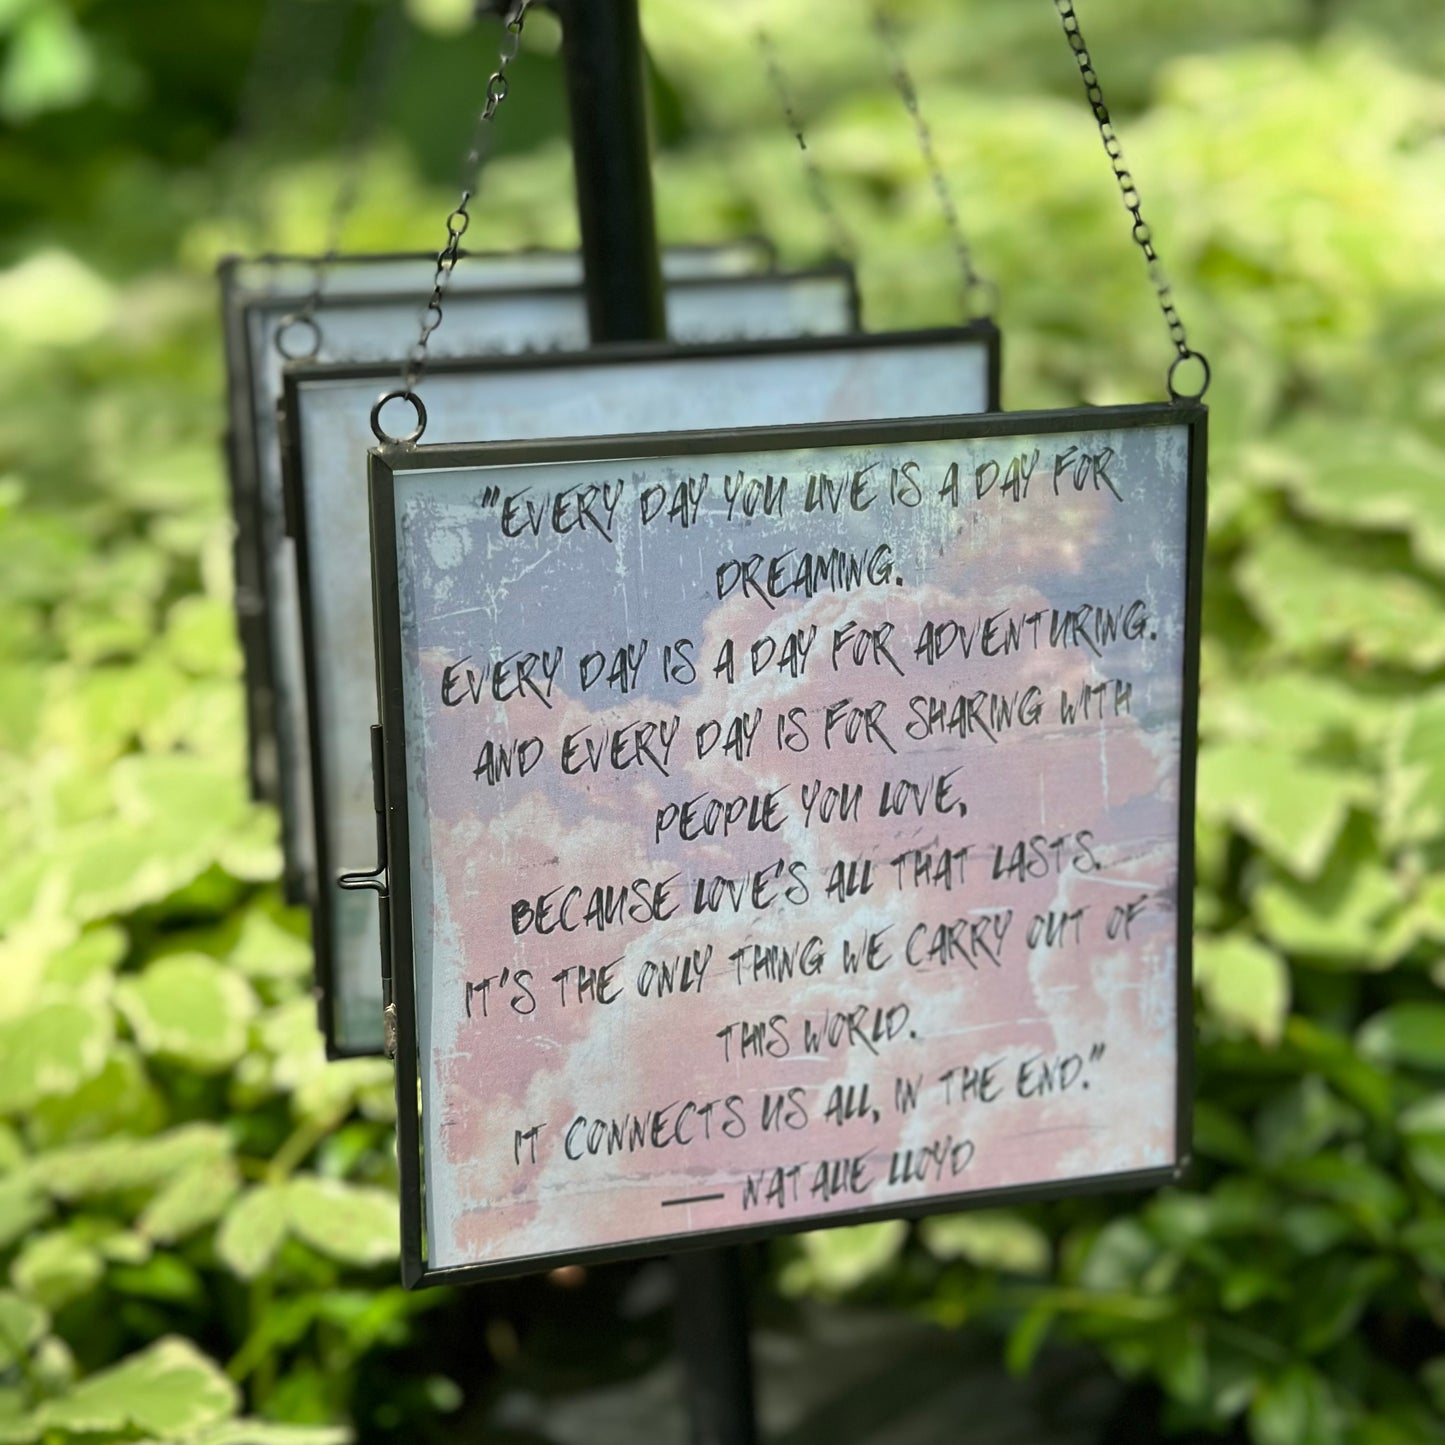 "EVERY DAY YOU LIVE IS A DAY FOR
DREAMING.
EVERY DAY IS A DAY FOR ADVENTURING.
AND EVERY DAY IS FOR SHARING WITH
PEOPLE YOU LOVE,
BECAUSE LOVE'S ALL THAT LASTS.
IT'S THE ONLY THING WE CARRY OUT OF
THIS WORLD.
IT CONNECTS US ALL, IN THE END."
— NATALIE LLOYD